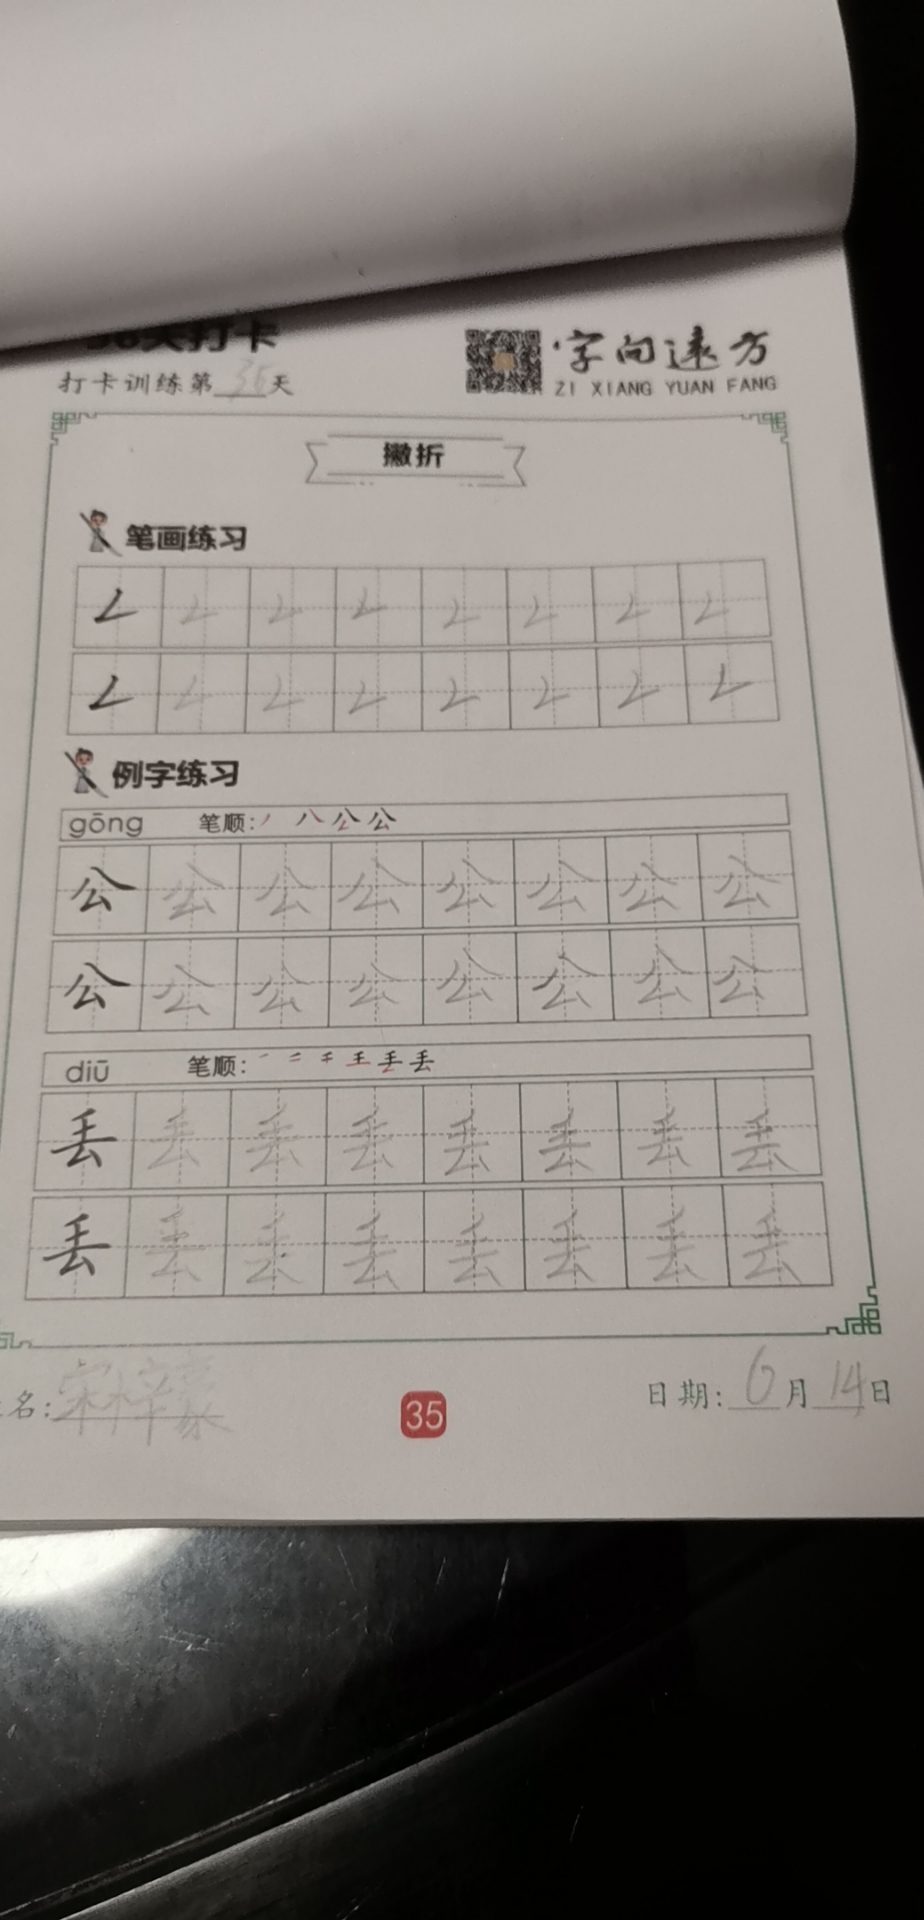 天打卡
字向远方
打卡训练第35天
ZI XIANG YUAN FANG
撇折
笔画练习
例字练习
gōng 笔顺: 丿 八 公 公
公 公 公 公 公 公 公 公
公 公 公 公 公 公 公 公
diū 笔顺: 一 二 千 王 丢 丢
丢 丢 丢 丢 丢 丢 丢 丢
丢 丢 丢 丢 丢 丢 丢 丢
名: 宋梓豪
35
日期: 6月14日